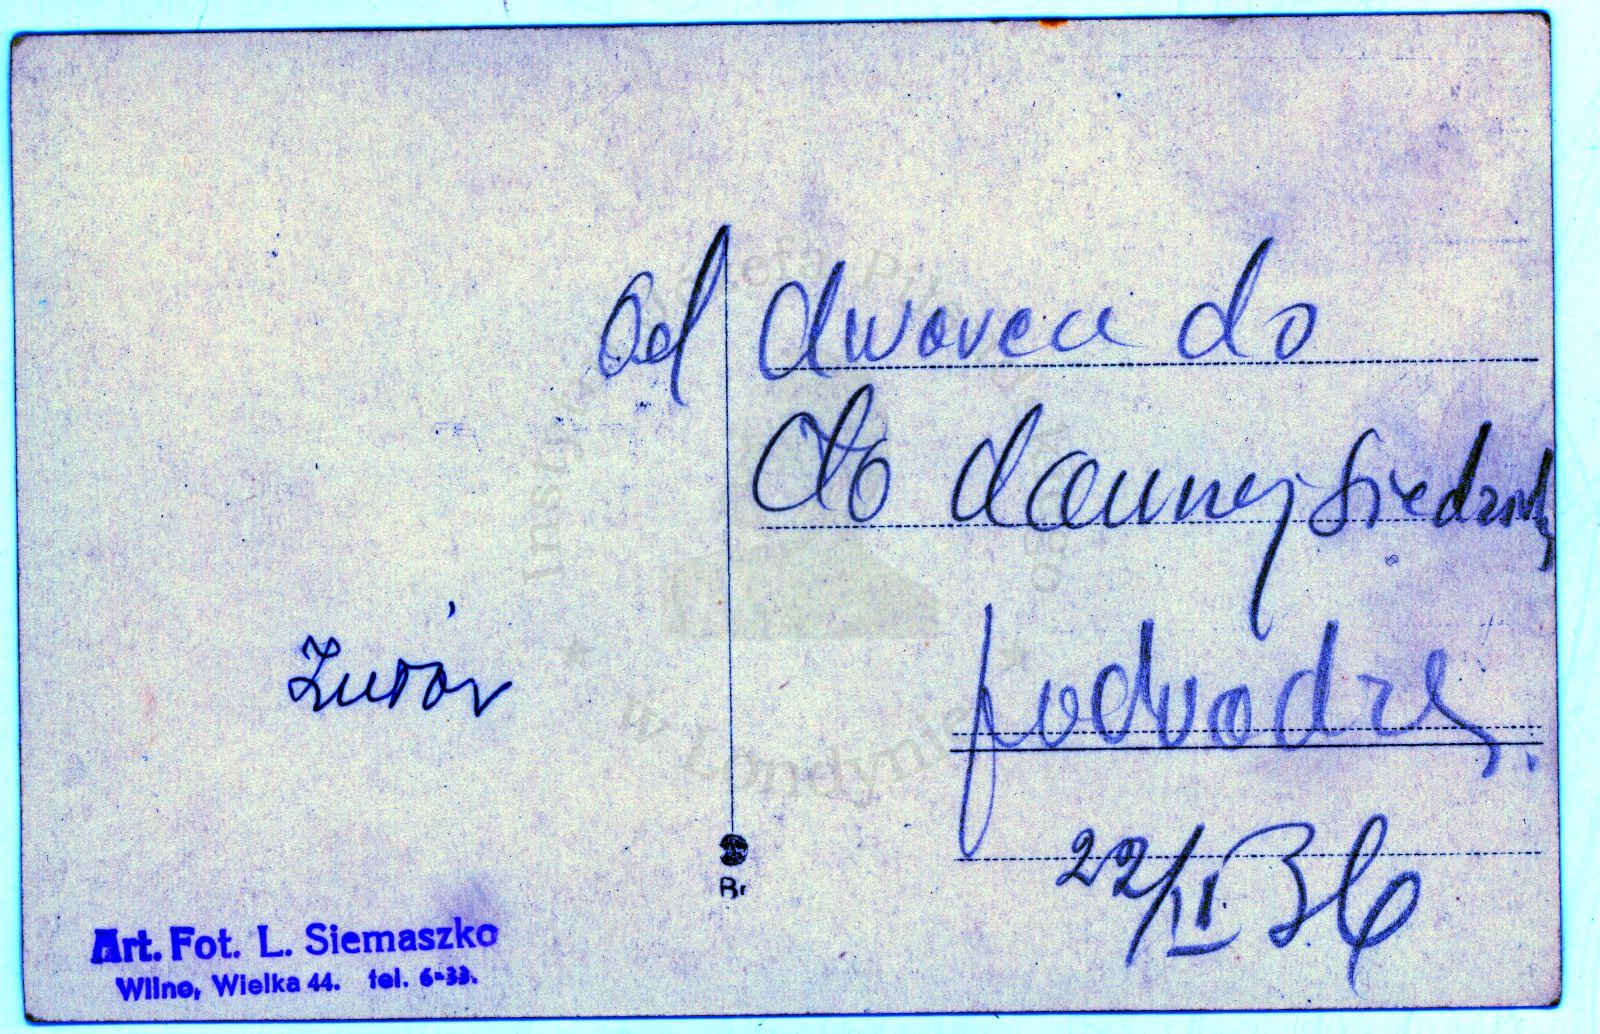 Od dworca do
do dawnej siedziby
podwodzą.
Zułów
22/II 36
Br
Art. Fot. L. Siemaszko
Wilno, Wielka 44. tel. 6-33.
Instytut Józefa Piłsudskiego
w Londynie